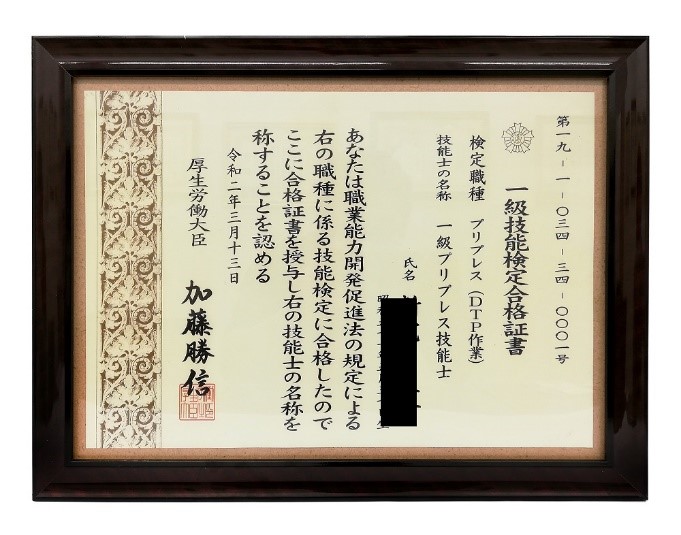 第一九－一－〇三四－三四－〇〇〇一号
一級技能検定合格証書
検定職種 プリプレス（DTP作業）
技能士の名称 一級プリプレス技能士
氏名
昭和
あなたは職業能力開発促進法の規定による
右の職種に係る技能検定に合格したので
ここに合格証書を授与し右の技能士の名称を
称することを認める
令和二年三月十三日
厚生労働大臣
加藤勝信